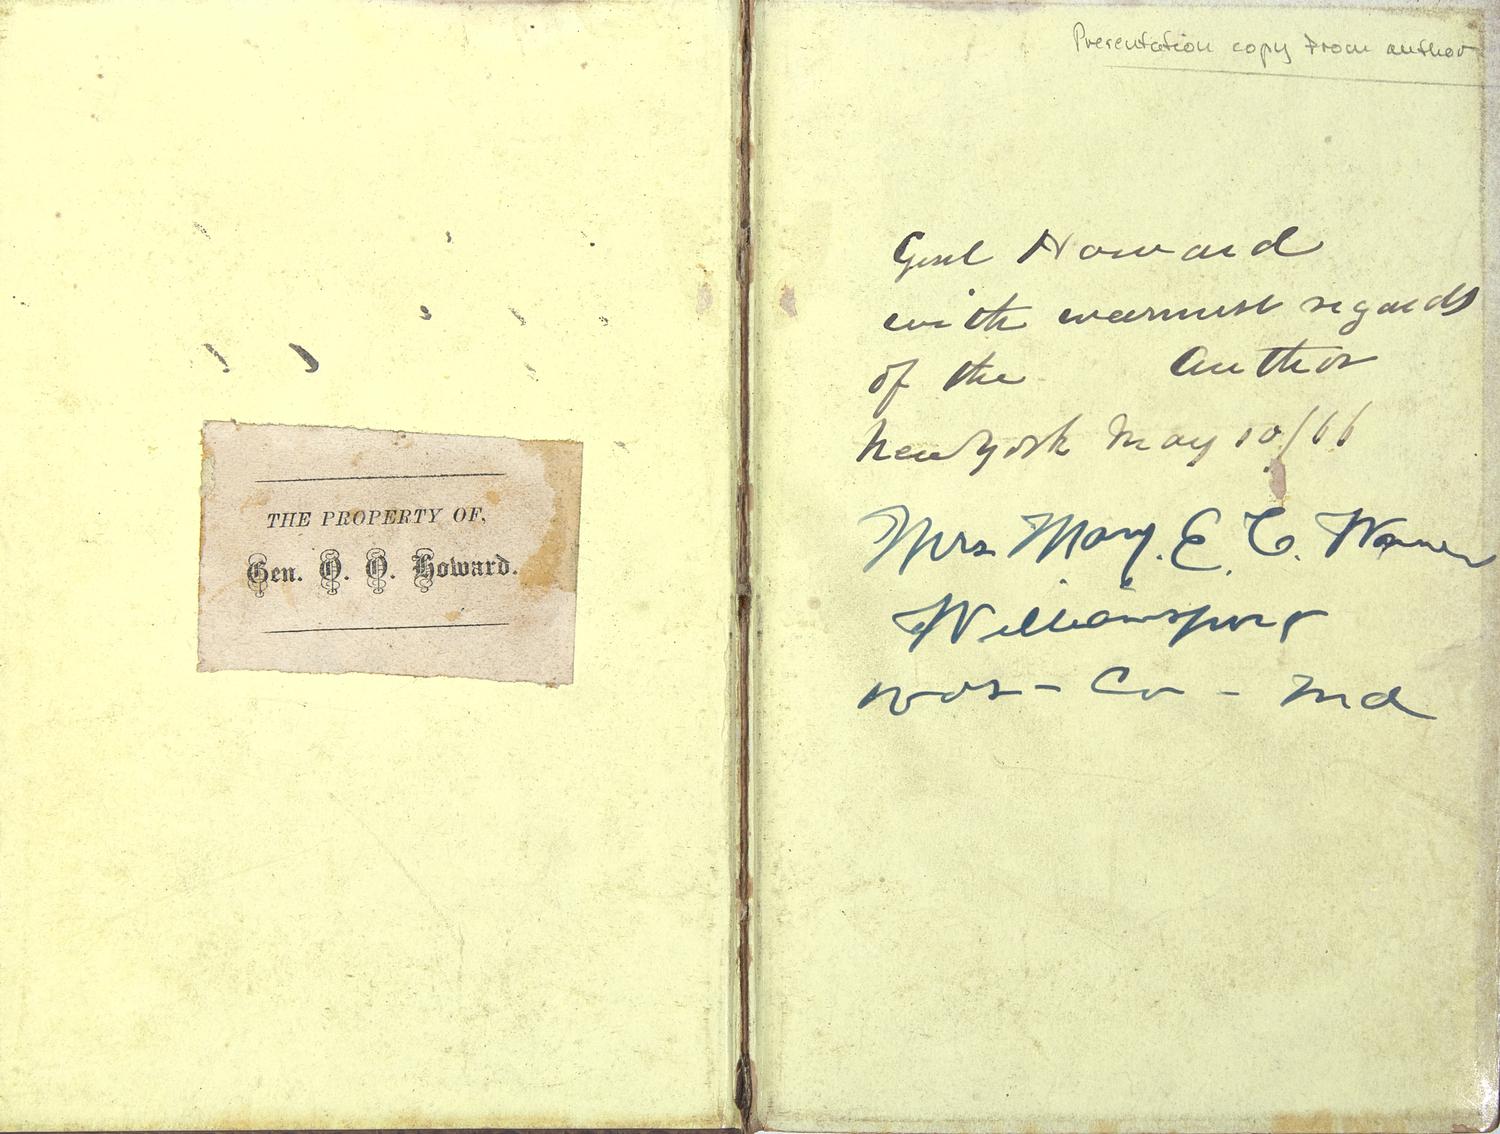 THE PROPERTY OF,
Gen. O. O. Howard.
Presentation copy from author
Genl Howard
with warmest regards
of the Author
New York May 10/66
Mrs Mary. E. C.
Williamsburg
Co - Md